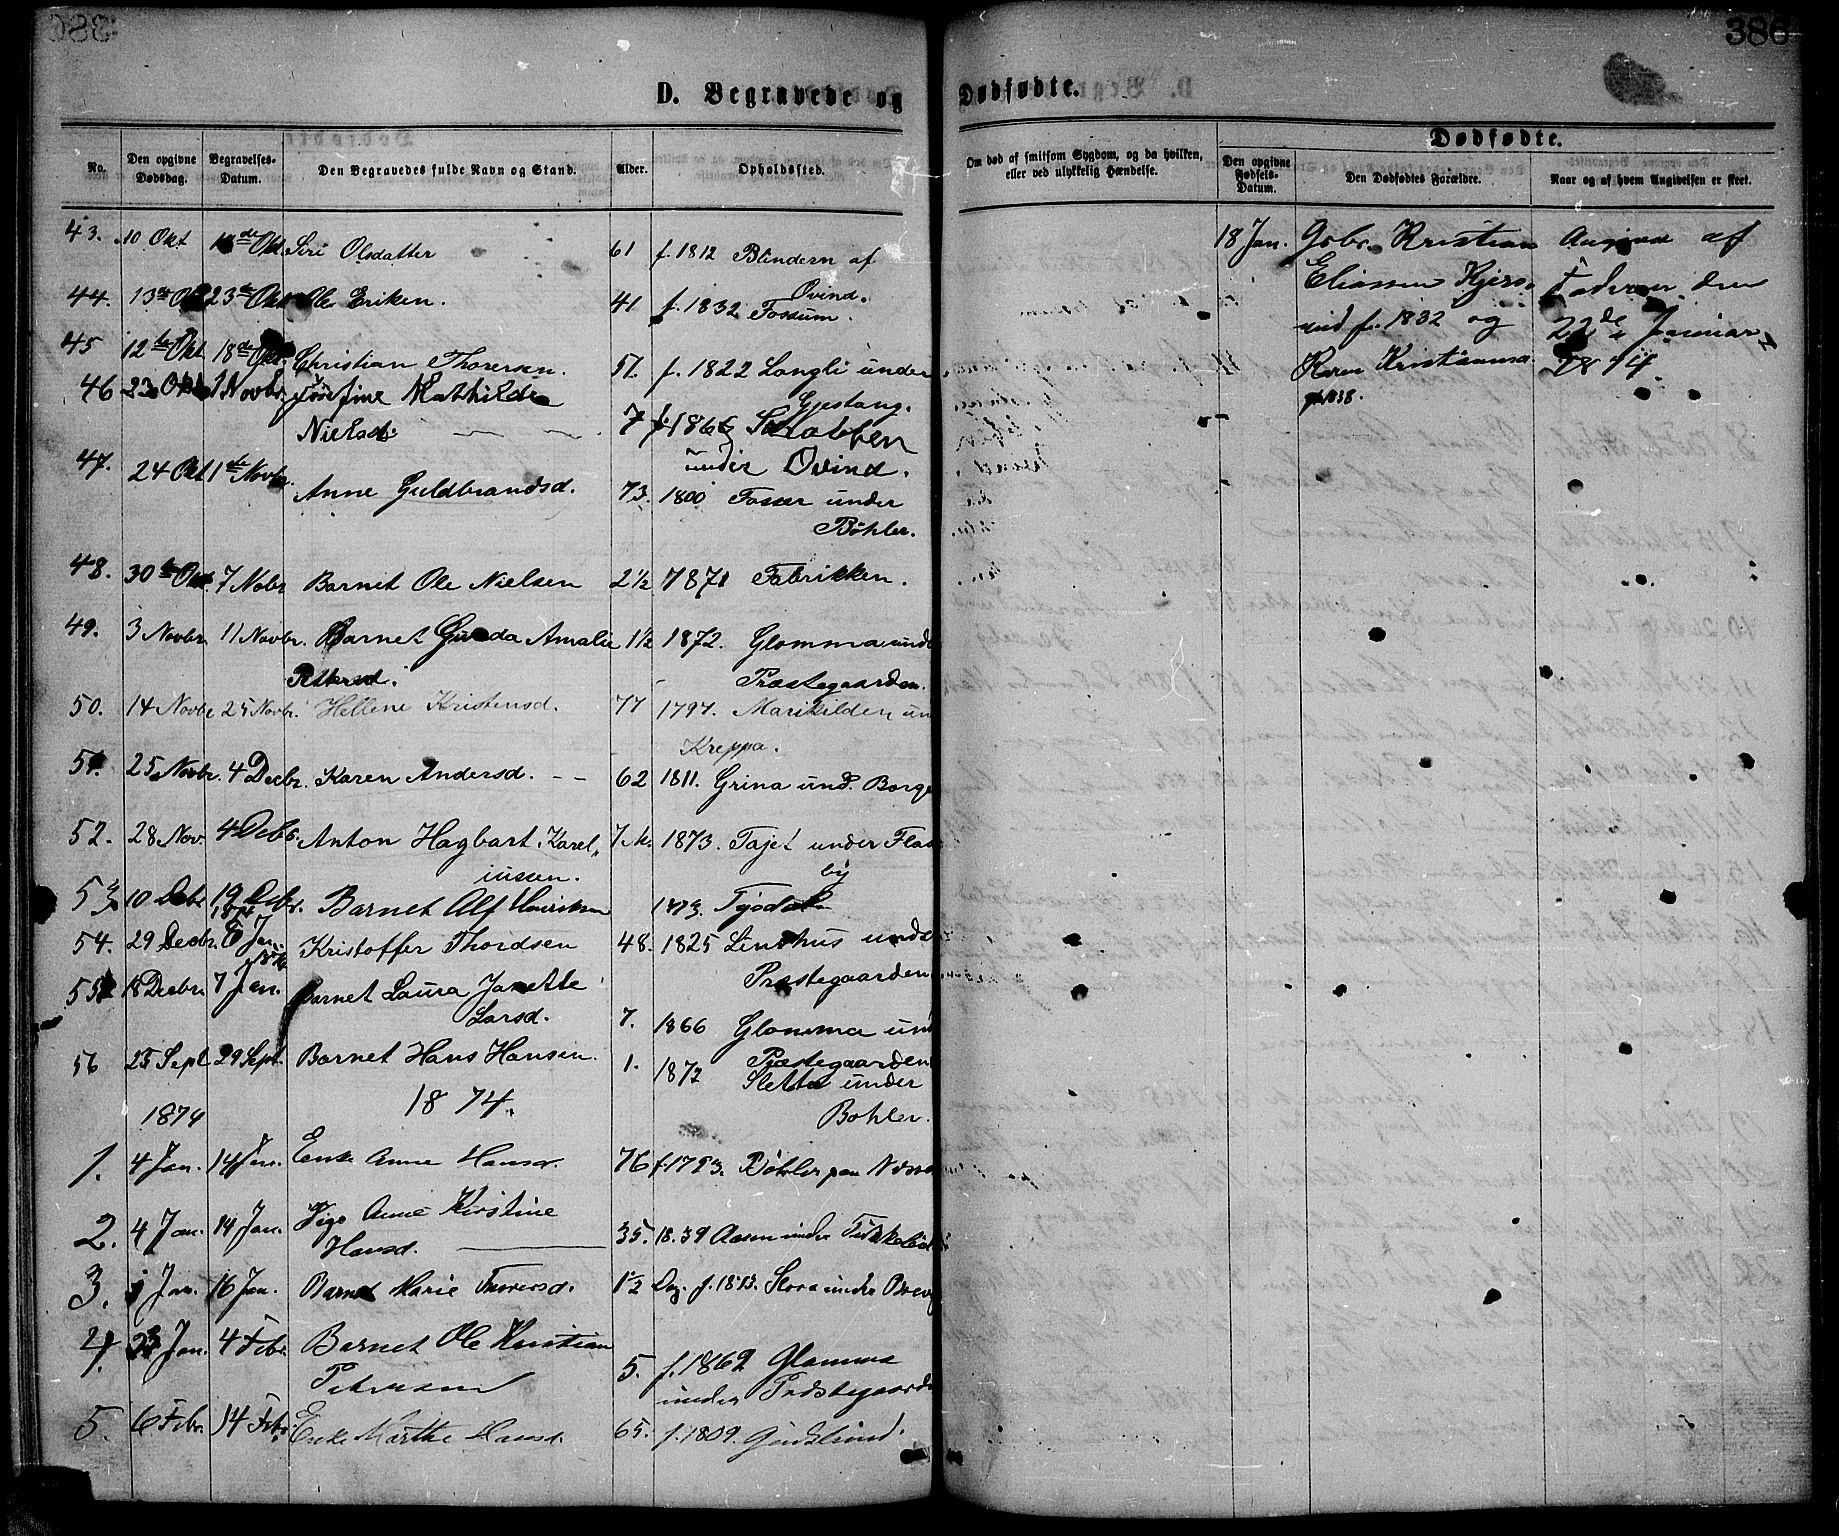 386
D. Begravede og Dødfødte.
No. Den opgivne Dødsdag. Begravelses-Datum. Den Begravedes fulde Navn og Stand. Alder. Opholdssted. Om død af smitsom Sygdom, og da hvilken, eller ved ulykkelig Hændelse. Dødfødte. Den opgivne Fødsels-Datum. Den Dødfødtes Forældre. Naar og af hvem Angivelsen er skeet.
43. 10 Okt 18de Okt Siri Olsdatter 61 f. 1812 Blindern af
Ovind.
44. 13de Okt 23de Okt Ole Eriken. 41 f. 1832 Fossum.
45 12te Okt 18de Okt. Christian Thoresen. 51. f. 1822 Langli under
Gjestang.
46 23 Okt 1 Novbr. Josefine Mathilde
Nielsd. 7 f. 1866 Strabben
under Ovind.
47. 24 Okt 1ste Novbr. Anne Guldbrandsd. 73. 1800 Fosser under
Bøhler.
48. 30te Okt. 7 Nobr Barnet Ole Nielsen 2 1/2 1871 Fabrikken.
49. 3 Novbr. 11 Novbr. Barnet Gunda Amalie 1 1/2 1872. Glomma und
Pettersd. Præstegaarden.
50. 14 Novbr 25 Novbr. Hellene Kristensd. 77 1797. Marikilden un
Kreppa.
51. 25 Novbr. 4 Decbr. Karen Andersd. 62 1811. Grina und. Borge
52. 28 Nov. 4 Debr. Anton Hagbart Karel„ 7 M. 1873. Tajet under Flas
iussen. by
53 10 Debr 19 Debr. Barnet Alf Henriksen 1873.
1874
54. 29 Decbr. 6 Jan. Kristoffer Thordsen 48. 1825 Linshus under
Præstegaarden
55 18 Decbr. 7 Jan. Barnet Laura Janette
Larsd. 7. 1866 Glomma un
Præstegaarden
56 25 Sept 29 Sept. Barnet Hans Hansen. 1. 1872 Sletta under
Bohler.
1874 1874.
1. 4 Jan. 14 Jan. Enke Anne Hansd. 76 f. 1793. Bøhler paa Næsset
2. 4 Jan. 14 Jan. Pige Anne Kirstine
Hansd. 35. 1839 Aasen under
3. Jan. 16 Jan. Barnet Marie Thoresd. 1 1/2 Dag. f. 1873. Stora under
4. 23 Jan. 4 Febr. Barnet Ole Kristian
Petersen 5. f. 1869 Glomma
under Præstegaarde
5. 6 Febr. 14 Febr. Enke Marthe Hansd. 65. f. 1809. Gudslund.
18 Jan. Gbr. Kristian
Eliassen Kjers„
rud f. 1832 og
Karen Kristiansd.
f. 1838.
Angivet af
Faderen den
22de Januar
1874.